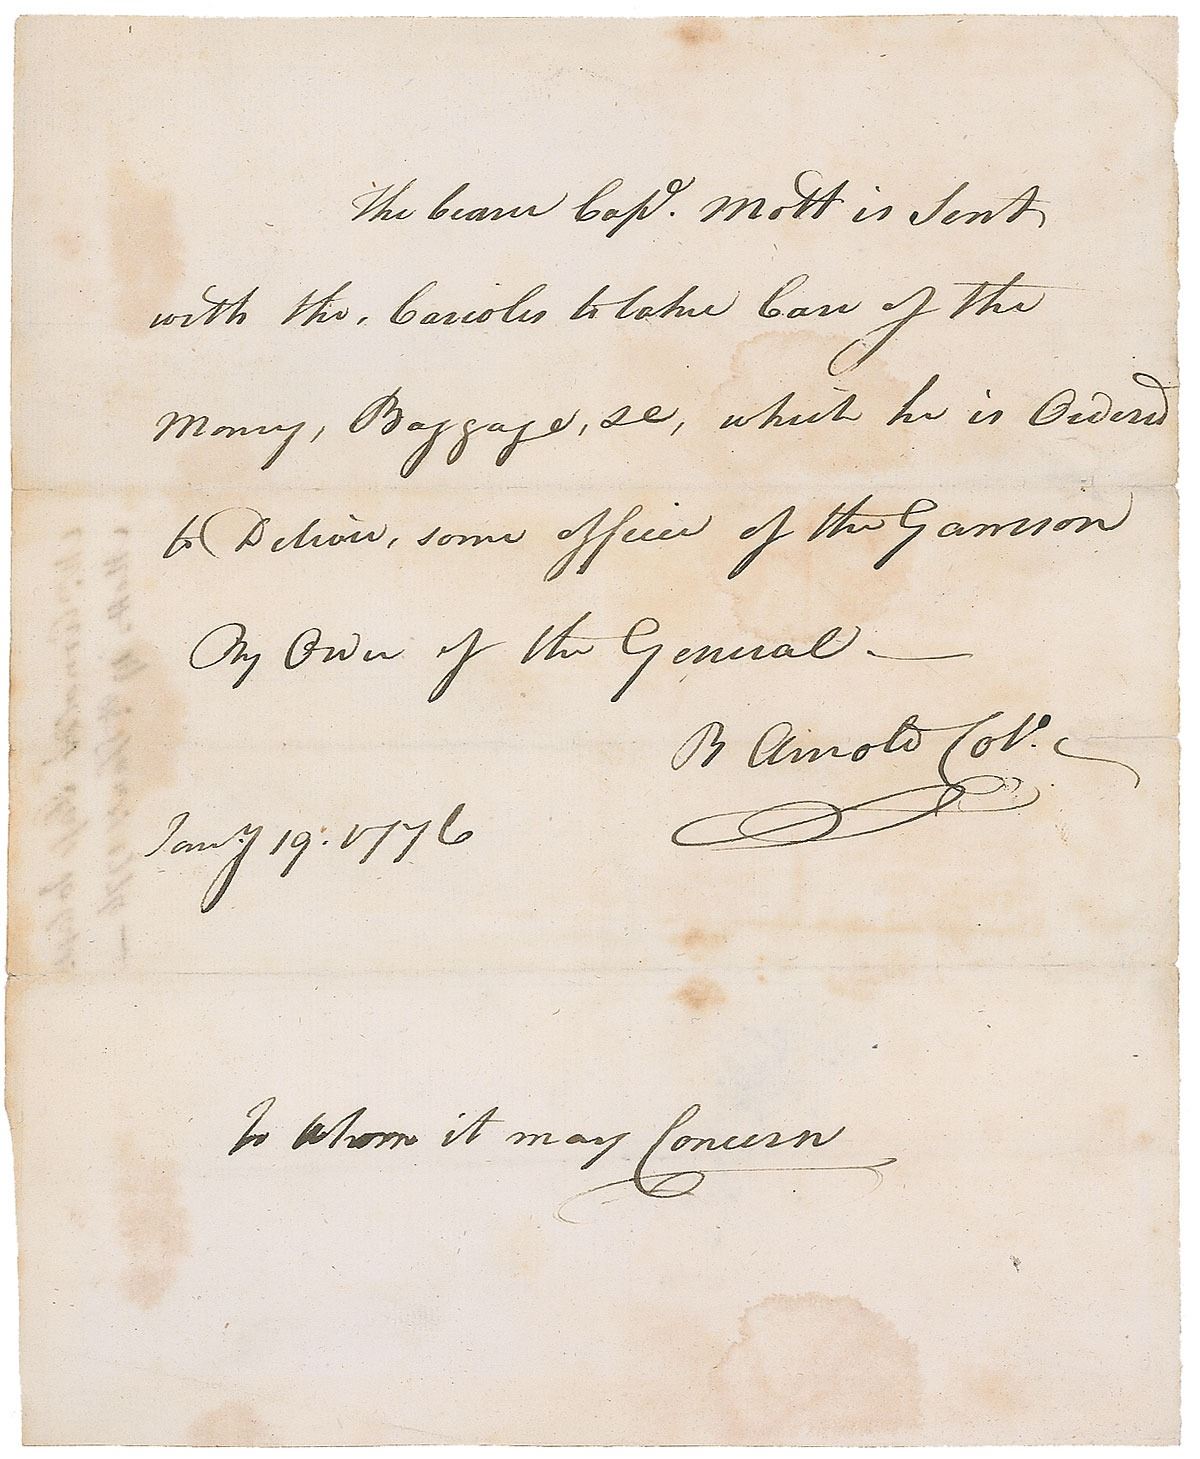 The bearer Capt. Mott is Sent
with the, Carioles to take Care of the
Money, Baggage, &c, which he is Orderd
to Deliver, some officer of the Garrison
By Order of the General.
B Arnold Colo.
Jany 19. 1776
To Whom it may Concern